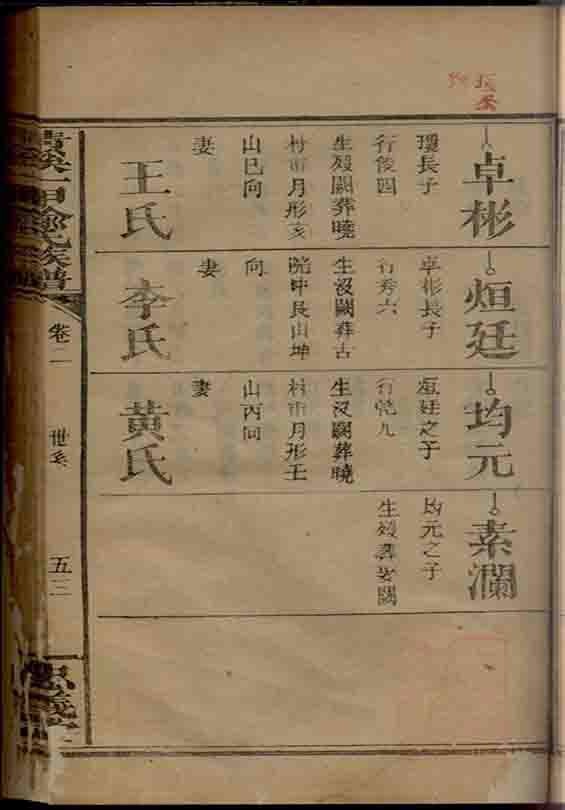 卓彬
瓊長子
行俊四
生歿闕葬曉
村市月形亥
山巳向
妻
王氏
烜廷
卓彬長子
行秀六
生沒闕葬古
院中艮山坤
向
妻
李氏
均元
烜廷之子
生沒闕葬曉
村市月形壬
山丙向
妻
黃氏
素瀾
均元之子
生歿葬妻闕
氏族譜
卷二
世系